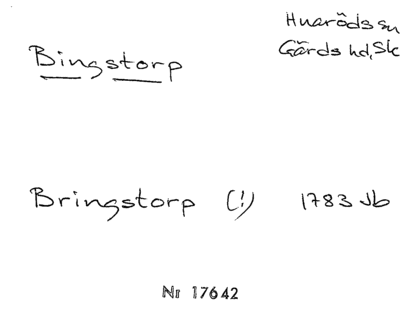 Huaröds sn
Gärds hd, Sk
Bingstorp
Bringstorp (!) 1783 Jb
Nr 17642